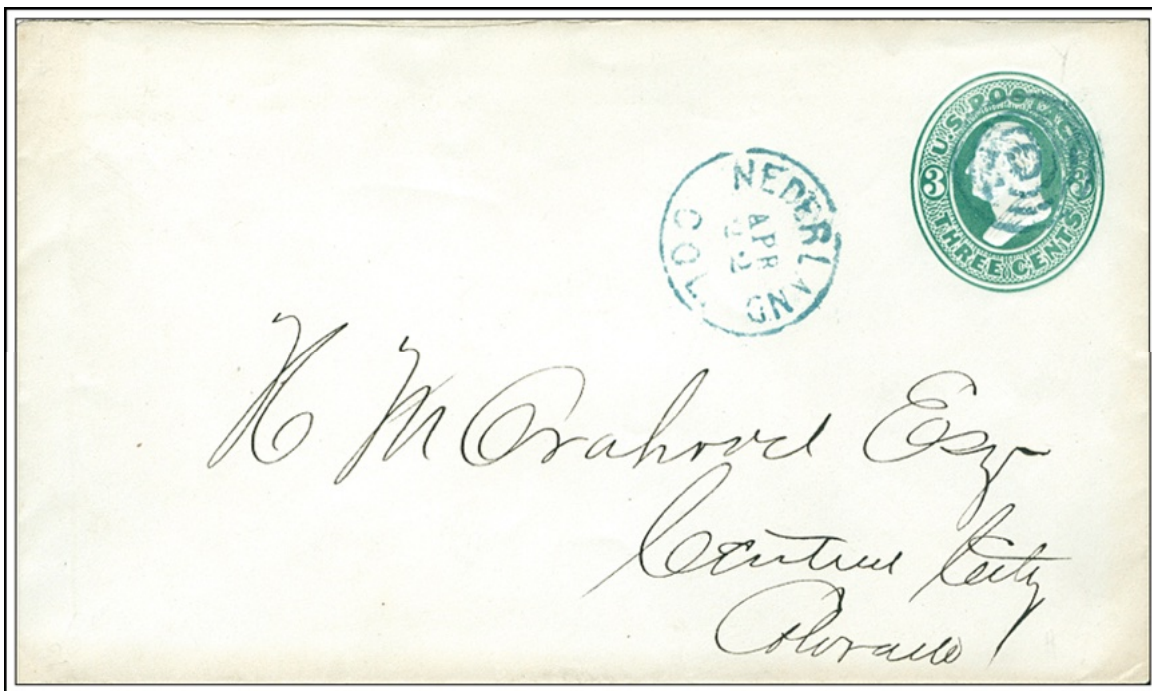 U.S. POSTAGE
3 3
THREE CENTS
NEDERLAND
COL.
APR
H M Orahood Esq
Central City
Colorado